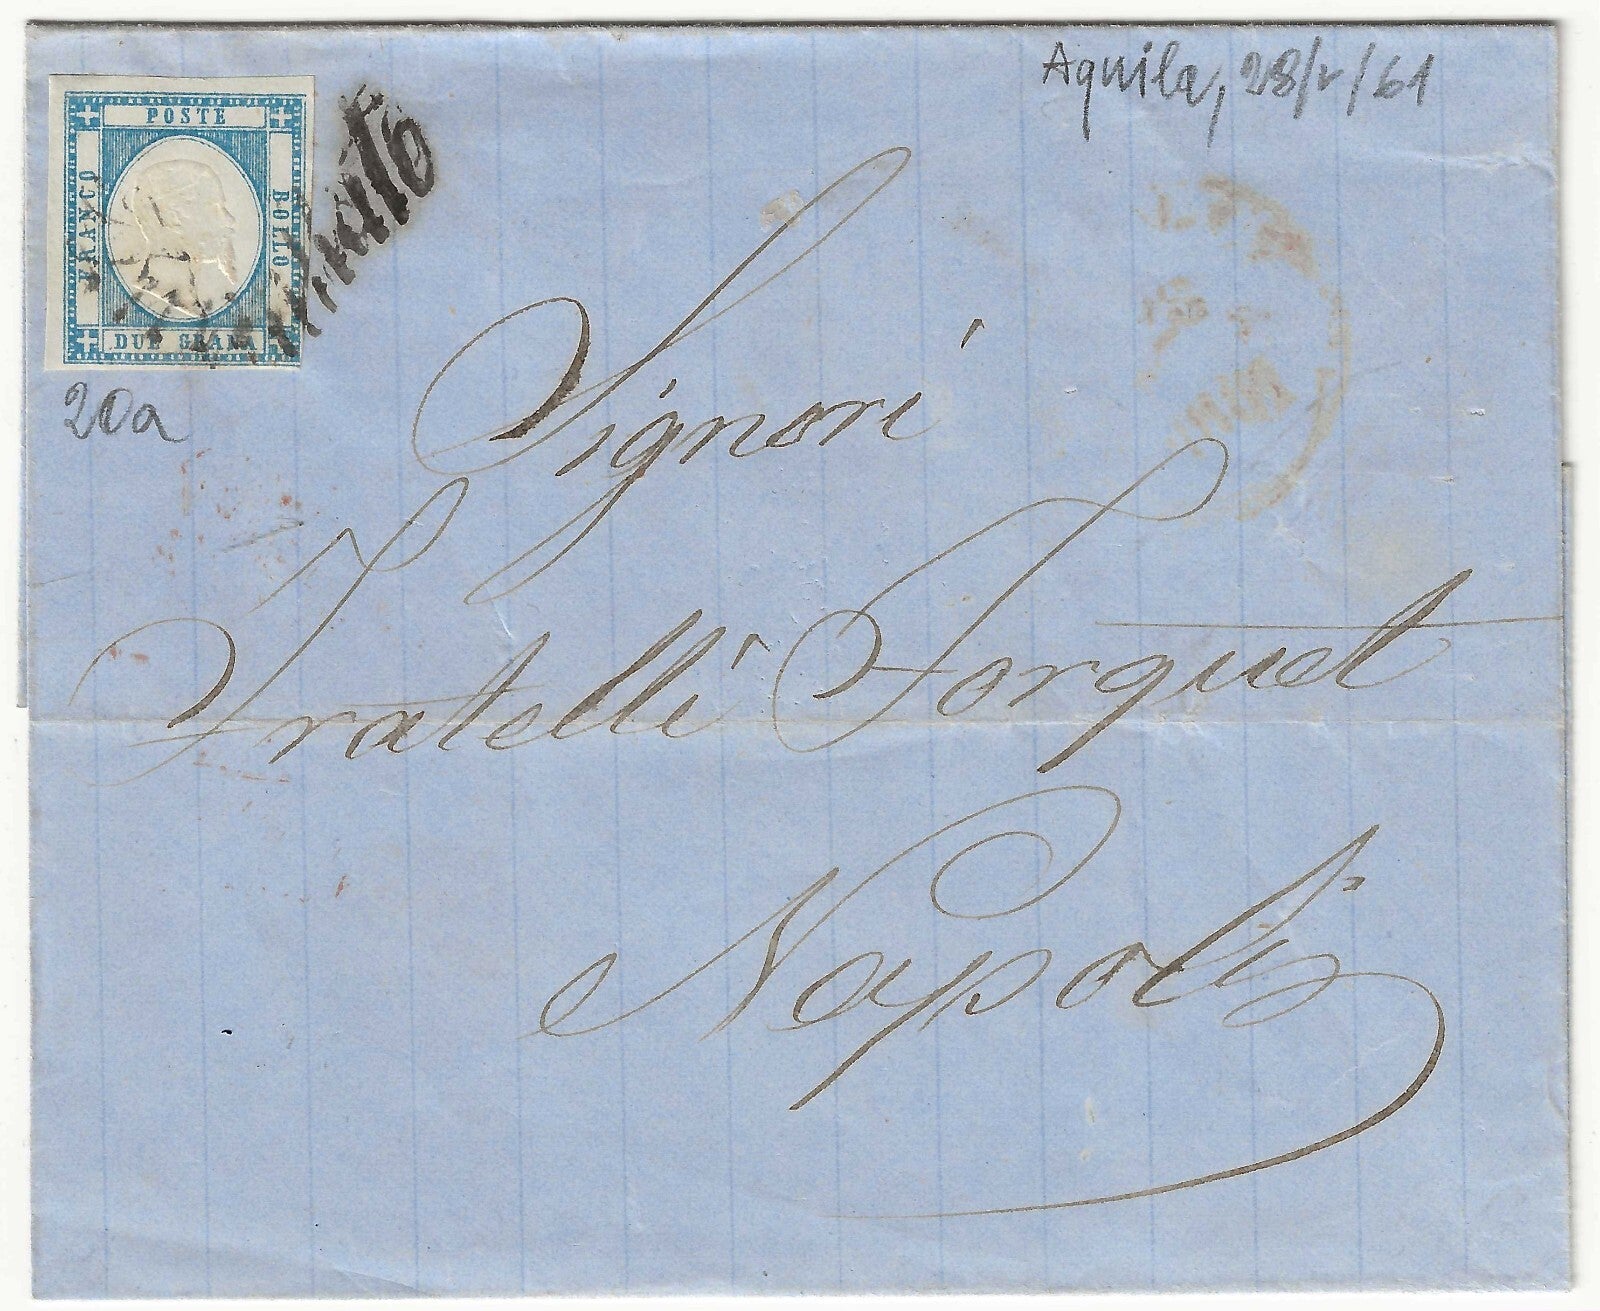 Aquila, 28/V/61
POSTE
FRANCO
BOLLO
DUE GRANA
20a
Signori
Fratelli Forquet
Napoli